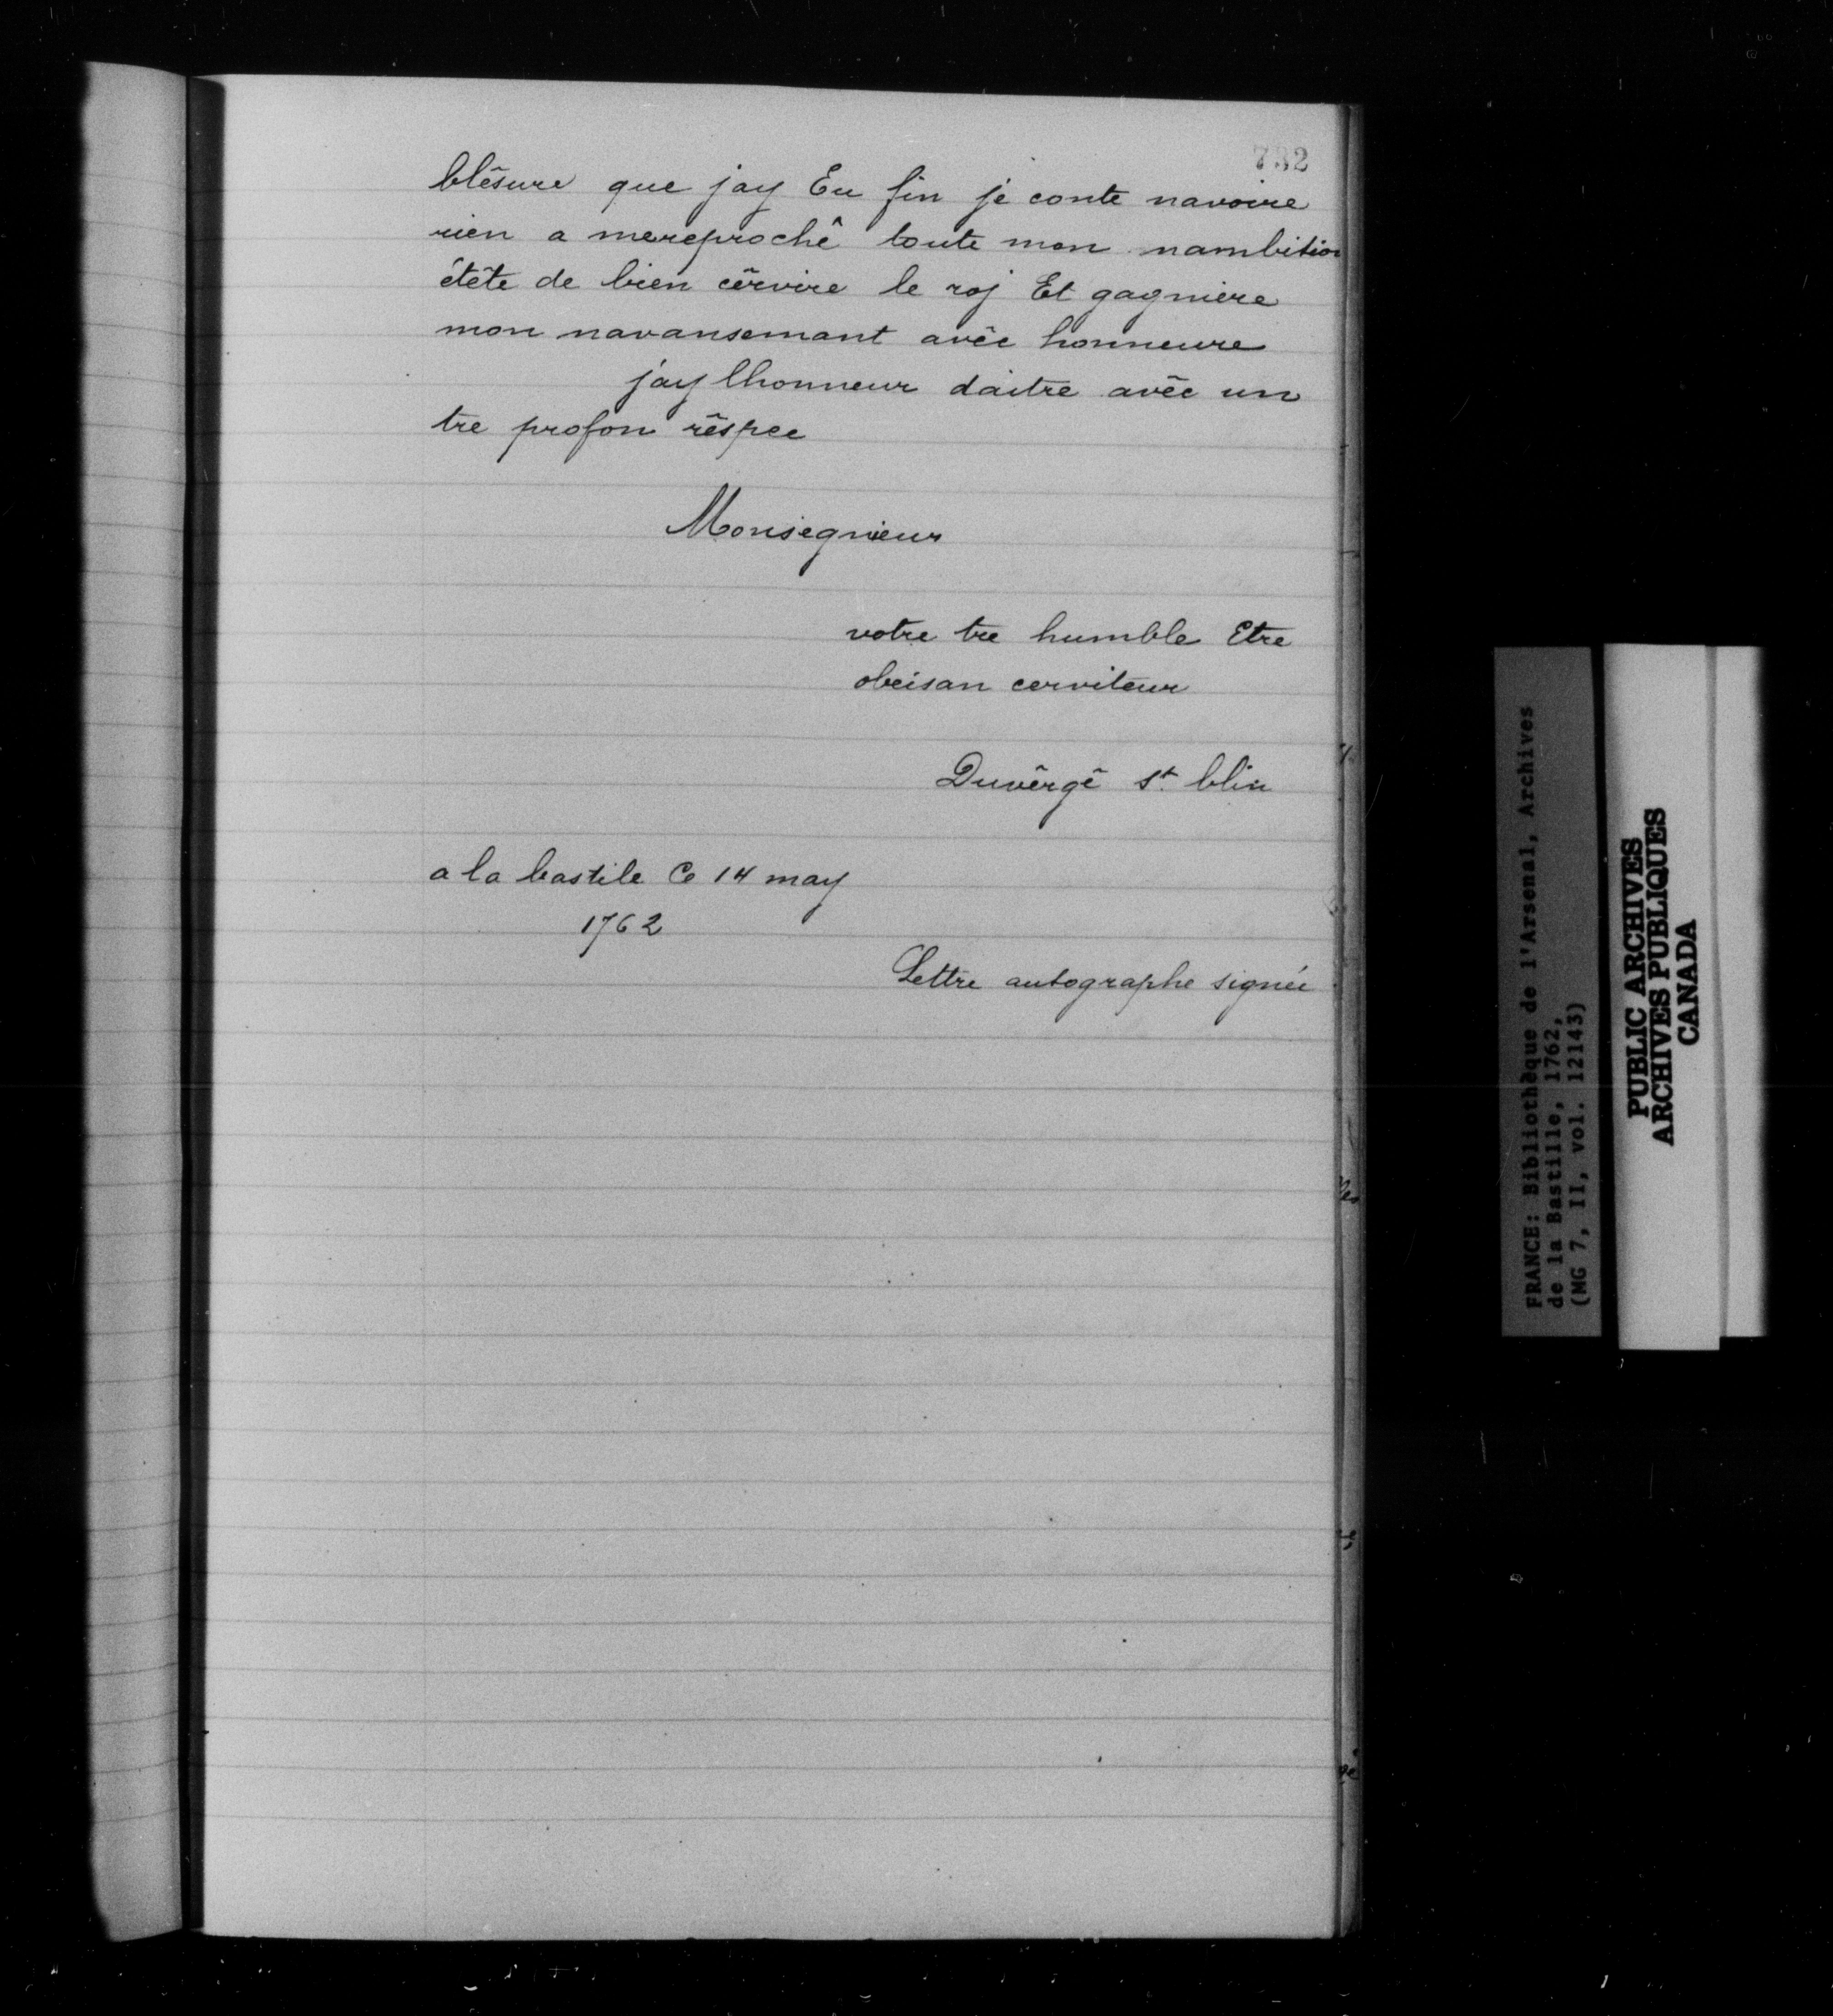 732
blêsure que jay Eu fin je conte navoire
rien a mereprochê toute mon nambition
étête de bien cêrvire le roj Et gagniere
mon navansemant avêc honneure
jay lhonneur daitre avêc un
tre profon rêspec
Monsegnieur
votre tre humble Etre
obeisan cerviteur
Duvêrgê st blin
a la bastile Ce 14 may
1762
Lettre autographe signée
FRANCE: Bibliothèque de l'Arsenal, Archives
de la Bastille, 1762,
(MG 7, II, vol. 12143)
PUBLIC ARCHIVES
ARCHIVES PUBLIQUES
CANADA